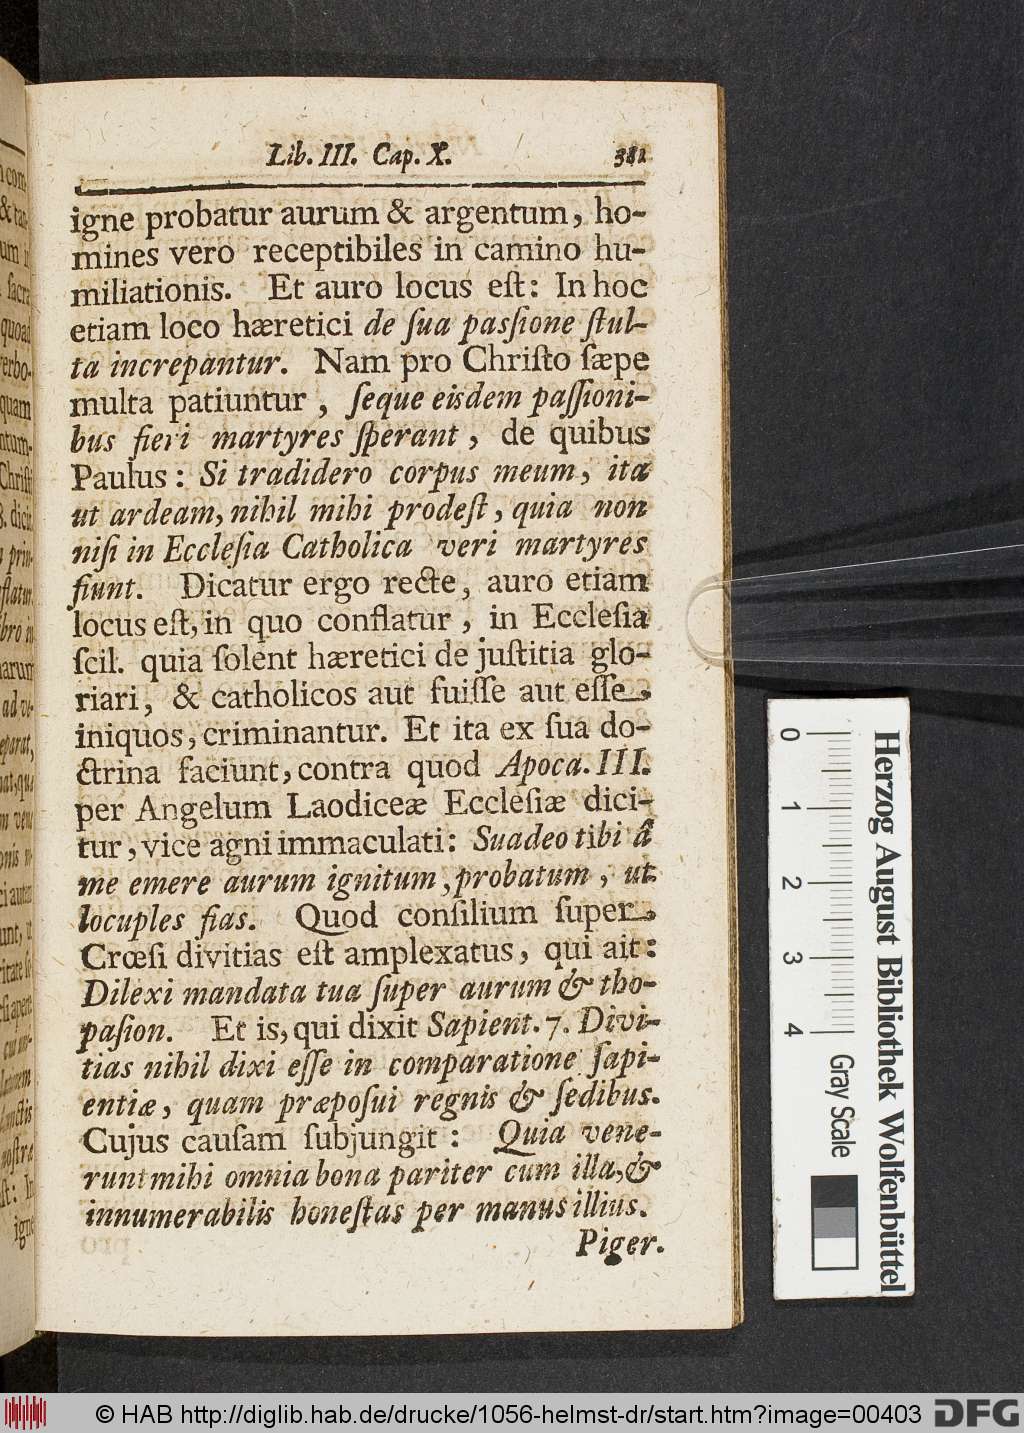 Lib. III. Cap. X. 381
igne probatur aurum & argentum, ho-
mines vero receptibiles in camino hu-
miliationis. Et auro locus eſt: In hoc
etiam loco hæretici de ſua paſsione ſtul-
ta increpantur. Nam pro Chriſto ſæpe
multa patiuntur, ſeque eisdem paſſioni-
bus fieri martyres ſperant, de quibus
Paulus: Si tradidero corpus meum, ita
ut ardeam, nihil mihi prodeſt, quia non
niſi in Eccleſia Catholica veri martyres
fiunt. Dicatur ergo recte, auro etiam
locus eſt, in quo conflatur, in Eccleſia
ſcil. quia ſolent hæretici de juſtitia glo-
riari, & catholicos aut fuiſſe aut eſſe
iniquos, criminantur. Et ita ex ſua do-
ctrina faciunt, contra quod Apoca. III.
per Angelum Laodiceæ Eccleſiæ dici-
tur, vice agni immaculati: Suadeo tibi â
me emere aurum ignitum, probatum, ut
locuples fias. Quod conſilium ſuper
Crœſi divitias eſt amplexatus, qui ait:
Dilexi mandata tua ſuper aurum & tho-
paſion. Et is, qui dixit Sapient. 7. Divi-
tias nihil dixi eſſe in comparatione ſapi-
entiæ, quam præpoſui regnis & ſedibus.
Cujus cauſam ſubjungit: Quia vene-
runt mihi omnia bona pariter cum illa, &
innumerabilis honeſtas per manus illius.
Piger.
0 1 2 3 4 Gray Scale
Herzog August Bibliothek Wolfenbüttel
© HAB http://diglib.hab.de/drucke/1056-helmst-dr/start.htm?image=00403
DFG